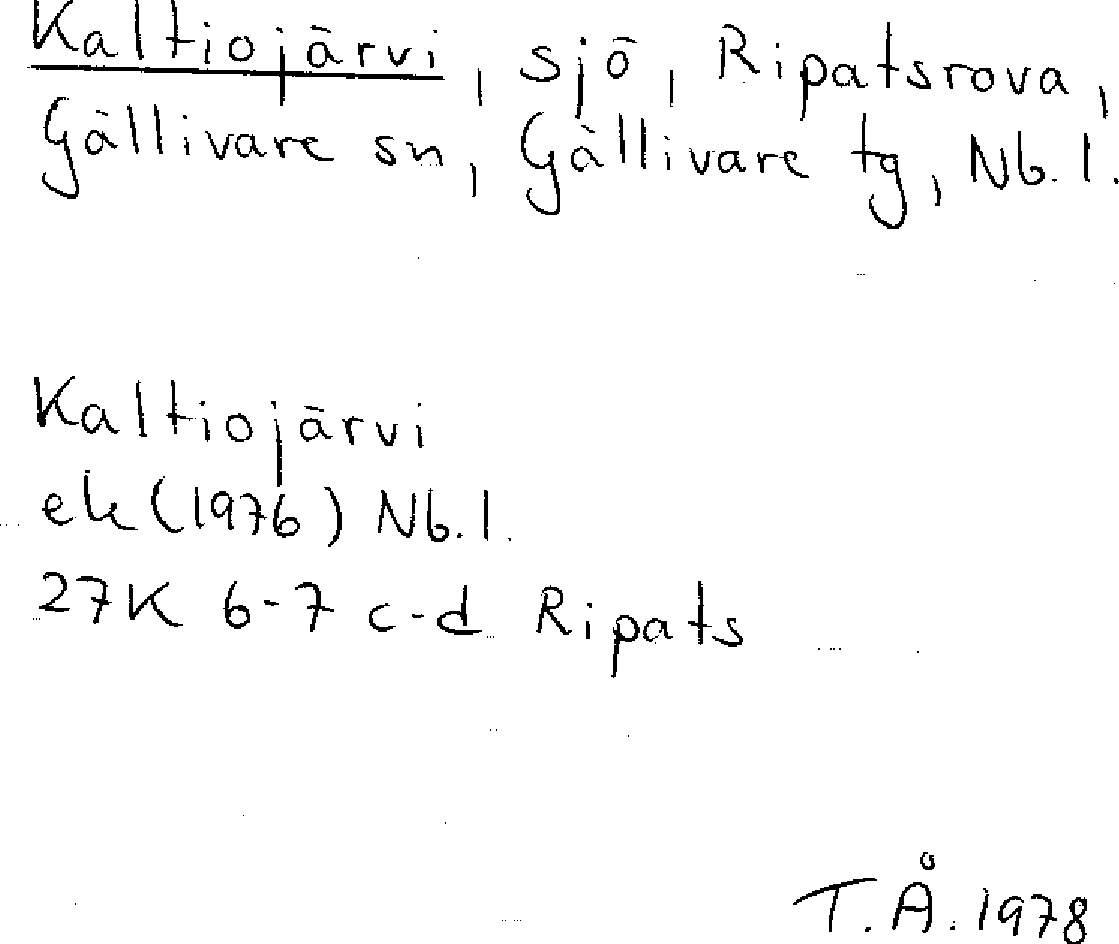 Kaltiojärvi, sjö, Ripatsrova,
Gällivare sn, Gällivare tg, Nb. l.
Kaltiojärvi
ek (1976) Nb. l.
27K 6-7 c-d Ripats
T.Å. 1978